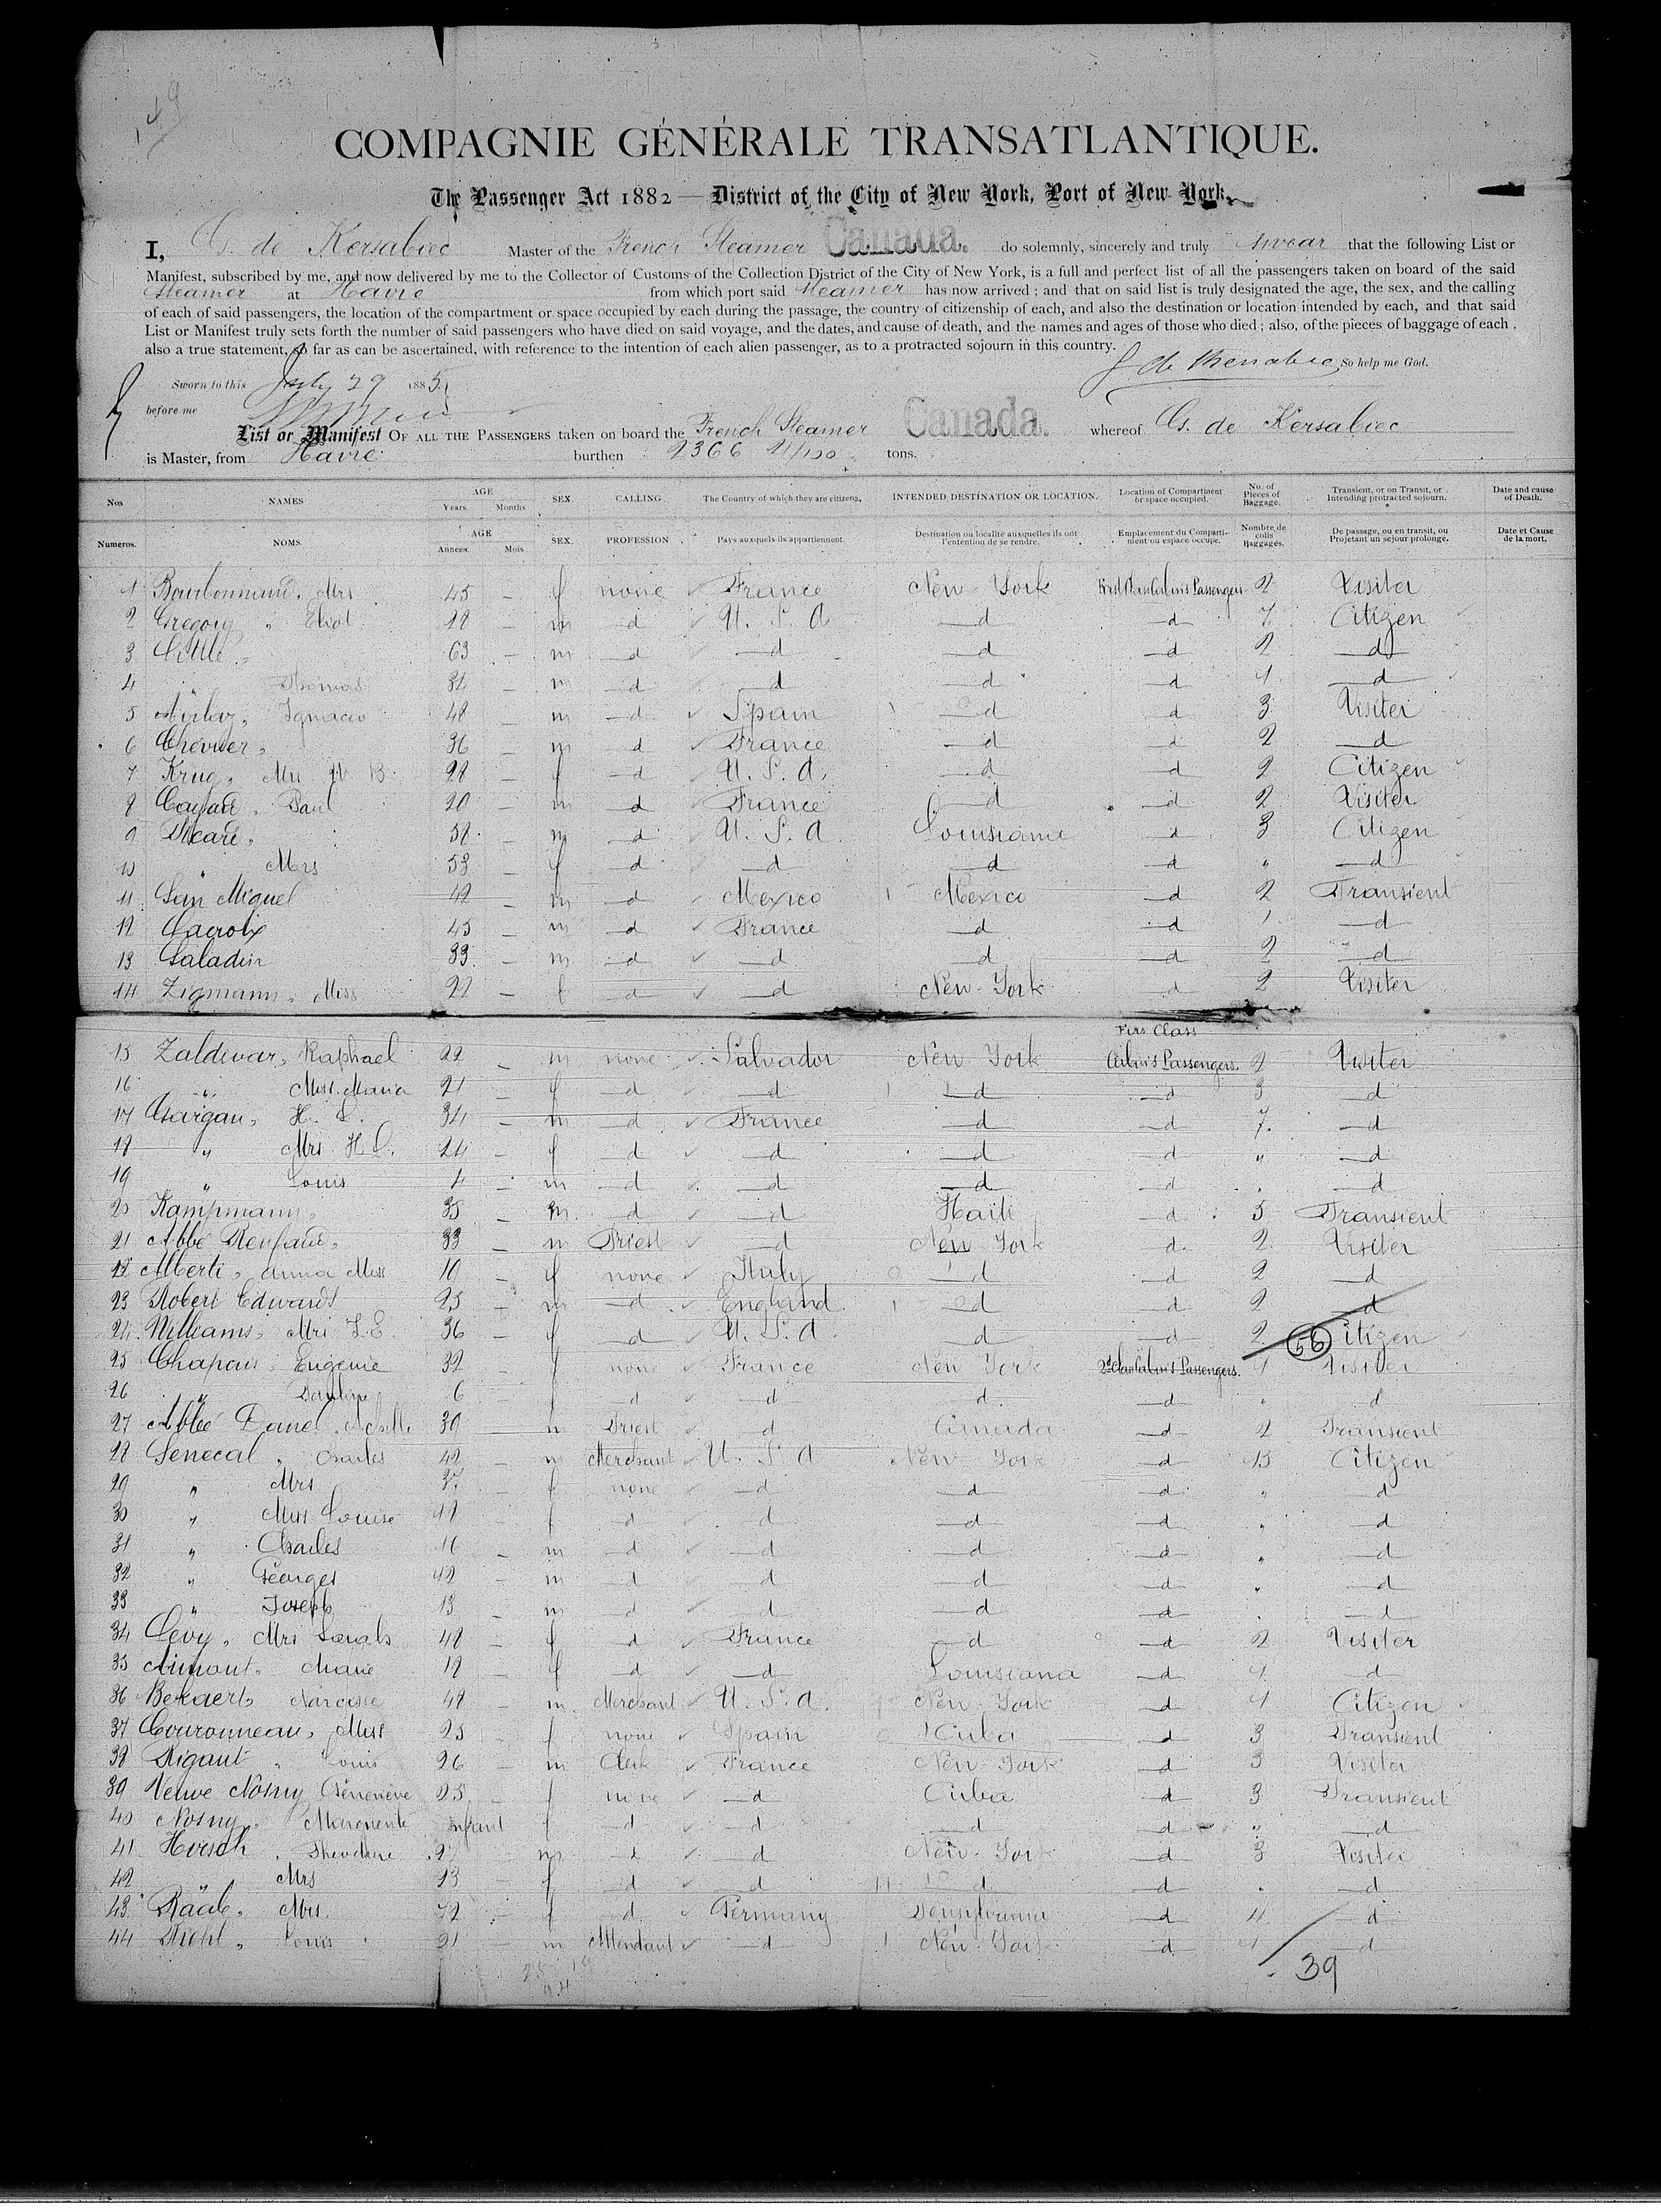 149
COMPAGNIE GÉNÉRALE TRANSATLANTIQUE.
The Passenger Act 1882 — District of the City of New York, Port of New York.
I, G. de Kersabiec Master of the French Steamer Canada. do solemnly, sincerely and truly swear that the following List or
Manifest, subscribed by me, and now delivered by me to the Collector of Customs of the Collection District of the City of New York, is a full and perfect list of all the passengers taken on board of the said
Steamer at Havre from which port said Steamer has now arrived; and that on said list is truly designated the age, the sex, and the calling
of each of said passengers, the location of the compartment or space occupied by each during the passage, the country of citizenship of each, and also the destination or location intended by each, and that said
List or Manifest truly sets forth the number of said passengers who have died on said voyage, and the dates, and cause of death, and the names and ages of those who died; also, of the pieces of baggage of each,
also a true statement, so far as can be ascertained, with reference to the intention of each alien passenger, as to a protracted sojourn in this country.
So help me God.
Sworn to this July 29 1885
before me
List or Manifest OF ALL THE PASSENGERS taken on board the French Steamer Canada. whereof G. de Kersabiec
is Master, from Havre burthen 2366 21/100 tons.
Nos NAMES AGE Years Months SEX. CALLING. The Country of which they are citizens. INTENDED DESTINATION OR LOCATION. Location of Compartment or space occupied. No. of Pieces of Baggage. Transient, or on Transit, or Intending protracted sojourn. Date and cause of Death.
Numeros. NOMS. AGE Annees. Mois SEX. PROFESSION Pays auxquels ils appartiennent. Destination ou localite auxquelles ils ont l'entention de se rendre. Emplacement du Comparti-ment ou espace occupe. Nombre de colis Baggages. De passage, ou en transit, ou Projetant un sejour prolonge. Date et Cause de la mort.
1 Mrs 45 - f none France New-York First Class Cabin's Passengers 2 Visiter
2 Gregory " Eliot 28 - m d U. S. A d d 7 Citizen
3 Little " 63 - m d d d d 2 d
4 " Thomas 34 - m d d d d 1 d
5 Ignacio 48 - m d Spain d d 3 Visiter
6 Chevrier " 36 - m d France d d 2 d
7 Krug " Mrs B. 28 - f d U. S. A. d d 2 Citizen
8 Paul 20 - m d France d d 2 Visiter
9 Sicard " - m d U. S. A Louisiana d 3 Citizen
10 " Mrs 53 - f d d d d " d
11 San Miguel 42 - m d Mexico Mexico d 2 Transient
12 Lacroix 45 - m d France d d 1 d
13 Saladin 33 - m d d d d 2 d
14 Zigmann " Miss 22 - f d d New-York d 2 Visiter
15 Zaldivar " Raphael 22 - m none Salvador New York Firs Class Cabin's Passengers. 2 Visiter
16 " Miss Maria 21 - f d d d d 3 d
17 Gargan " H. L. 34 - m d France d d 7 d
18 " Mrs H. L. 24 - f d d d d " d
19 " Louis 4 - m d d d d " d
20 Kampmann " 35 - m d d Haiti d 5 Transient
21 Abbé 33 - m Priest d New York d 2 Visiter
22 Alberti " Anna Miss 10 f none Italy d d 2 d
23 Robert Edwards 25 - m d England d d 2 d
24 Williams " Mrs 36 - f d U. S. A d d 2 Citizen
56
25 Chapais " Eugenie 32 f none France New York 2d Class Cabin's Passengers. 1 Visiter
26 " Pauline 6 f d d d d " d
27 Abbé 39 m Priest d Canada d 2 Transient
28 Senecal " Charles 42 - m Merchant U. S. A New York d 15 Citizen
29 " Mrs 37 - f none d d d " d
30 " Miss Louise f d d d d " d
31 " Charles 16 - m d d d d " d
32 " Georges - m d d d d " d
33 " Joseph 13 - m d d d d " d
34 Levy " Mrs Sarah 48 - f d France d d 2 Visiter
35 Marie - f d d Louisiana d 1 d
36 Bekaert Narcisse 48 - m Merchant U. S. A. New-York d 1 Citizen
37 Couronneau " Miss 25 - f none Spain Cuba d 3 Transient
38 Rigaut " Louis 26 - m Clerk France New-York d 3 Visiter
39 Veuve Nosny Génevieve 25 f none d Cuba d 3 Transient
40 Nosny " infant f d d d d " d
41 Hirsch " Theodore 27 m d d New-York d 3 Visiter
42 " Mrs 23 f d d d d " d
43 Mrs - f d Germany Pensylvania d 4 d
44 Diehl " Louis 21 - m Attendant d New York d 1 d
39